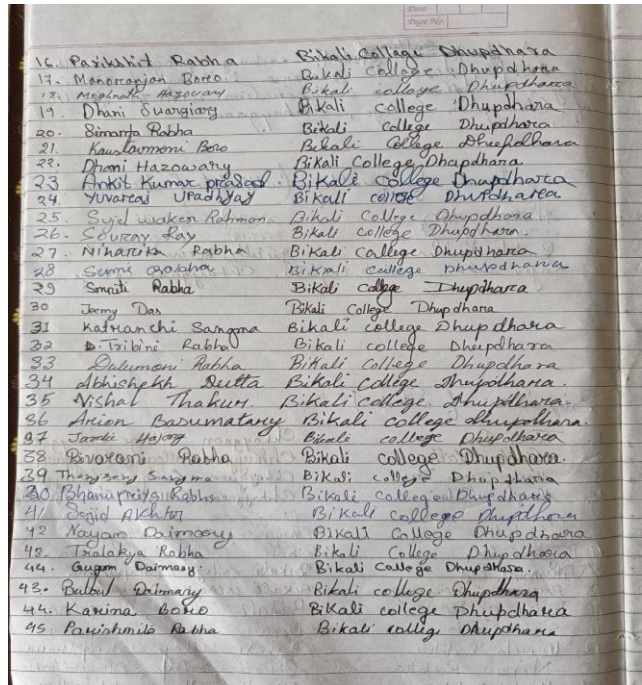 Date
Page No.
16. Parikshit Rabha Bikali College Dhupdhara
17. Manoranjan Boro Bikali College Dhupdhara
18. Meghnath Hazowary Bikali college Dhupdharra
19. Dhani Swargiary Bikali college Dhupdhara
20. Simanta Rabha Bikali College Dhupdhara
21. Kaustavmoni Boro Bikali College Dhupdhara
22. Dhoni Hazowary Bikali College, Dhapdhara
23 Ankit Kumar prasad Bikali College Dhupdhara
24. Yuvaraj Upadhyay Bikali college Dhupdhara
25. Syed waken Rahman Bikali College Dhupdhara
26. Sourav Ray Bikali College Dhupdhara.
27. Niharika Rabha Bikali College Dhupdhara
28 Sumi Rabha Bikali college Dhupdhara
29 Smriti Rabha Bikali College Dhupdhara
30 Jeemy Das Bikali College Dhupdhara
31 Katranchi Sangma Bikali college Dhupdhara
32 Tribini Rabha Bikali college Dhupdhara
33 Dulumoni Rabha Bikali College Dhupdhara
34 Abhishekh Dutta Bikali College Dhupdhara.
35 Vishal Thakur. Bikali college Dhupdhara.
36 Arion Basumatary Bikali college dhupdhara.
37 Hajong Bikali college Dhupdhara
38 Bivarani Rabha Bikali college Dhupdhara.
39 Sangma Bikali college Dhupdhara
40 Bhanapreiya Rabha Bikali College Dhupdhara
41 Sejid Akhtar Bikali College Dhupdhara
42 Nayam Daimaery Bikali College Dhupdhara
42. Tralakya Rabha Bikali College Dhupdhara
44. Gugum Daimary. Bikali College Dhupdhara.
43. Bulbul Daimary Bikali college Dhupdhara
44. Karina Boro Bikali college Dhupdhara
45 Parishmita Rabha Bikali college Dhupdhara